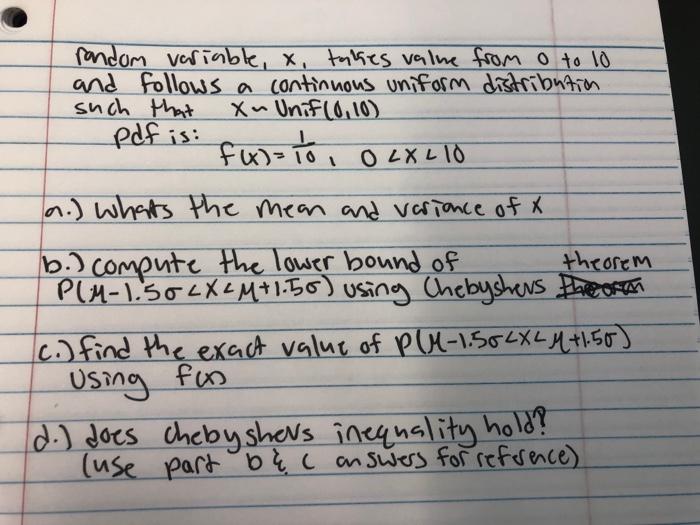 random variable, x, takes value from 0 to 10
and follows a continuous uniform distribution
such that x ~ Unif(0,10)
pdf is:
f(x) = 1/10, 0 < x < 10
a.) whats the mean and variance of x
b.) compute the lower bound of
P(μ-1.5σ<x<μ+1.5σ) using Chebyshevs theorem
c.) find the exact value of P(μ-1.5σ<x<μ+1.5σ)
using f(x)
d.) does chebyshevs inequality hold?
(use part b & c answers for reference)